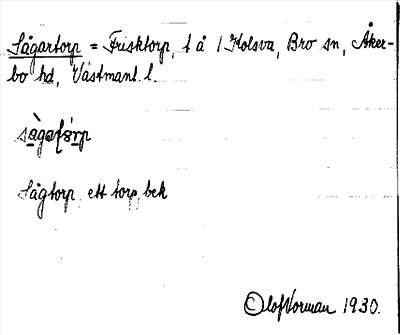 Sågartorp = Frisktorp, t å 1 Kolsva, Bro sn, Åker-
bo hd, Västmanl l.
Sågtorp ett torp, bek
Olof Norman 1930.